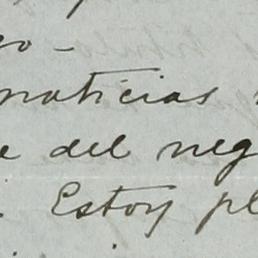 noticias
del neg
Estoy pl